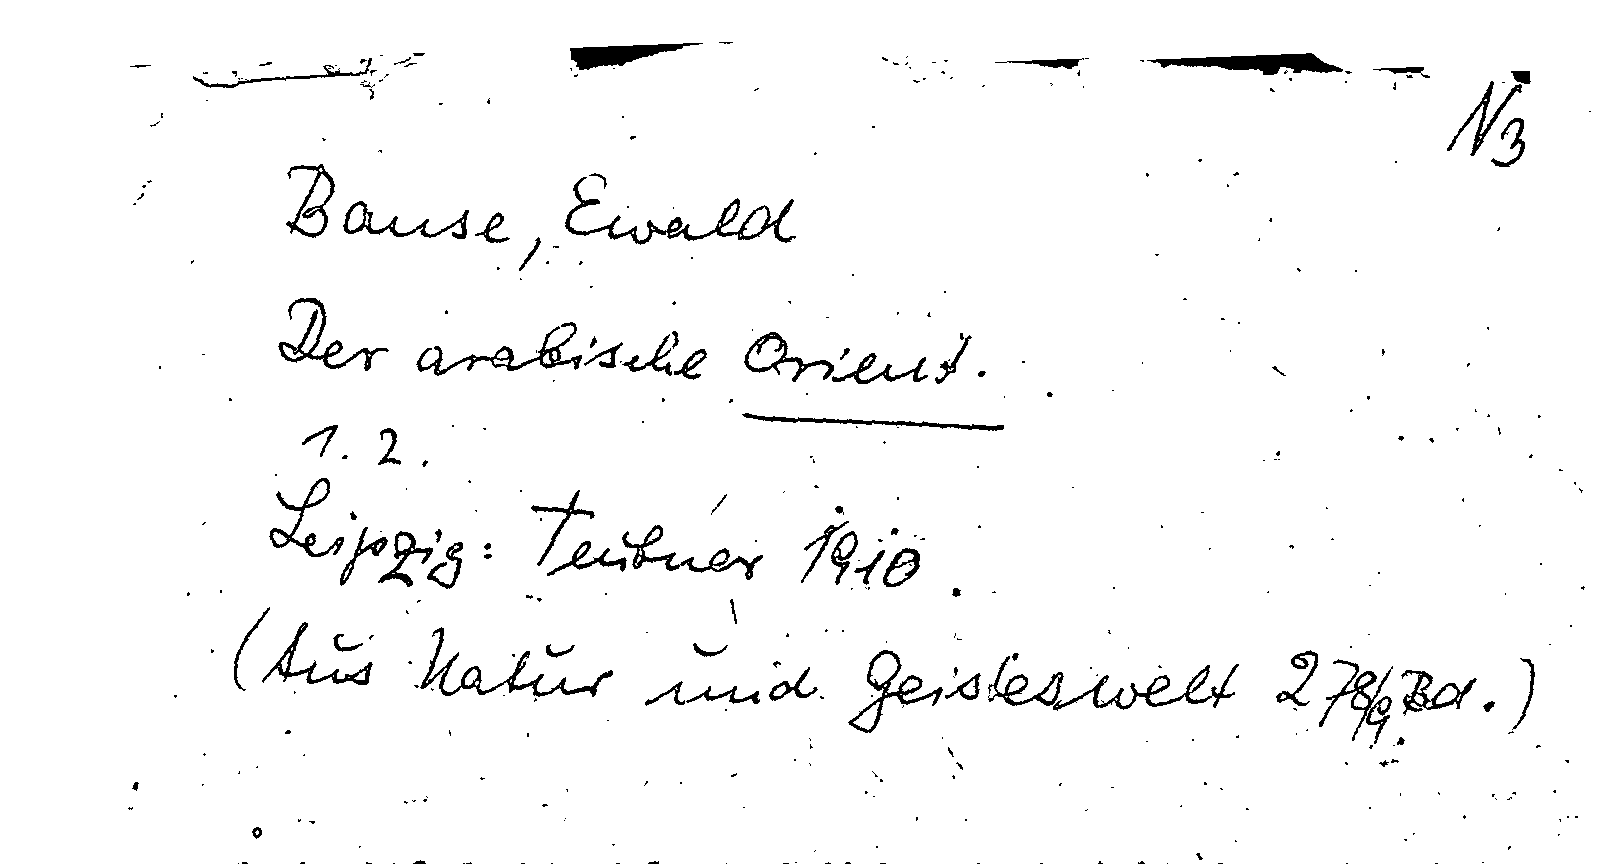 N3
Banse, Ewald
Der arabische Orient.
1. 2.
Leipzig: Teubner 1910.
(Aus Natur und Geisteswelt 278/9 Bd.)